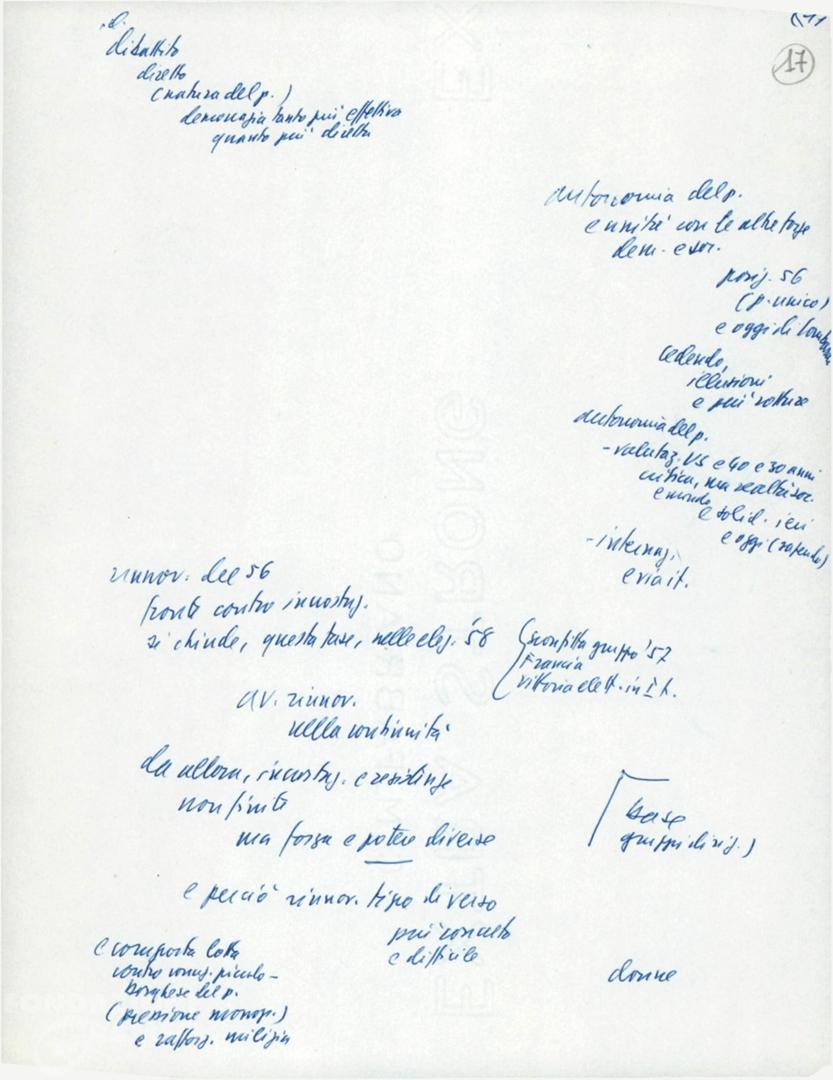 17
dibattito
diretto
(natura del p.)
democrazia tanto più effettiva
quanto più diretta
autonomia del p.
e unità con le altre forze
dem. e soc.
posiz. 56
(p. unico)
e oggi di
cedendo,
illusioni
e più rotture
autonomia del p.
- valutaz. US e 40 e 30 anni
critica, ma realtà soc.
e mondo
e solid. ieri
e oggi
- internaz.
e via it.
rinnov. del 56
fronte contro incrostaz.
si chiude, questa fase, nelle elez. '58
(sconfitta gruppo '57
Francia
vittoria elett. in It.
av. rinnov.
nella continuità
da allora, incrostaz. e resistenze
non finite
ma forza e potere diverse
base
gruppi dirig.)
e perciò rinnov. tipo diverso
più concreto
e difficile
e comporta lotta
contro concez. piccolo-
borghese del p.
(pressione monop.)
e rafforz. milizia
donne